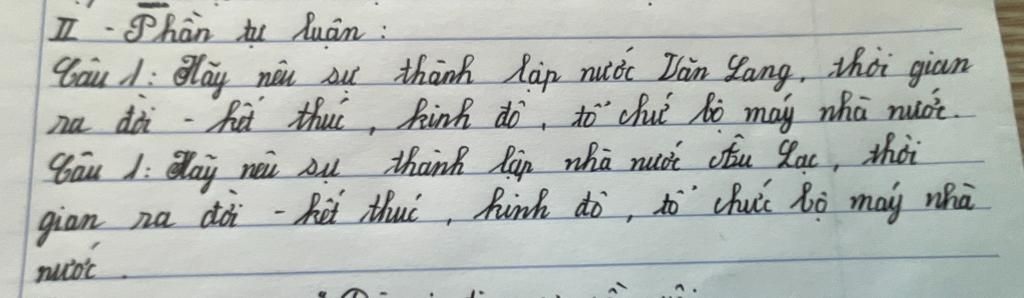 II - Phần tự luận :
Câu 1: Hãy nêu sự thành lập nước Văn Lang, thời gian
ra đời - kết thúc, kinh đô, tổ chứ bộ máy nhà nước.
Câu 1: Hãy nêu sự thành lập nhà nước Âu Lạc, thời
gian ra đời - kết thúc, kinh đô, tổ chức bộ máy nhà
nước.